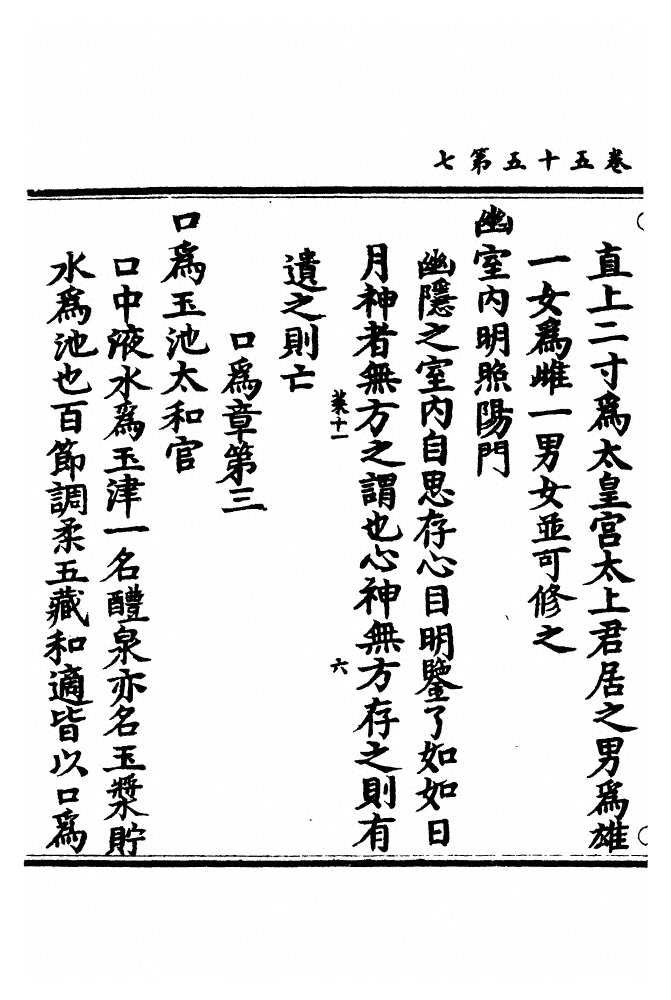 卷五十五第七
直上二寸爲太皇宮太上君居之男爲雄
一女爲雌一男女並可修之
幽室內明照陽門
幽隱之室內自思存心目明鑒了如如日
月神者無方之謂也心神無方存之則有
葉十一
六
遺之則亡
口爲章第三
口爲玉池太和官
口中液水爲玉津一名醴泉亦名玉漿貯
水爲池也百節調柔五藏和適皆以口爲